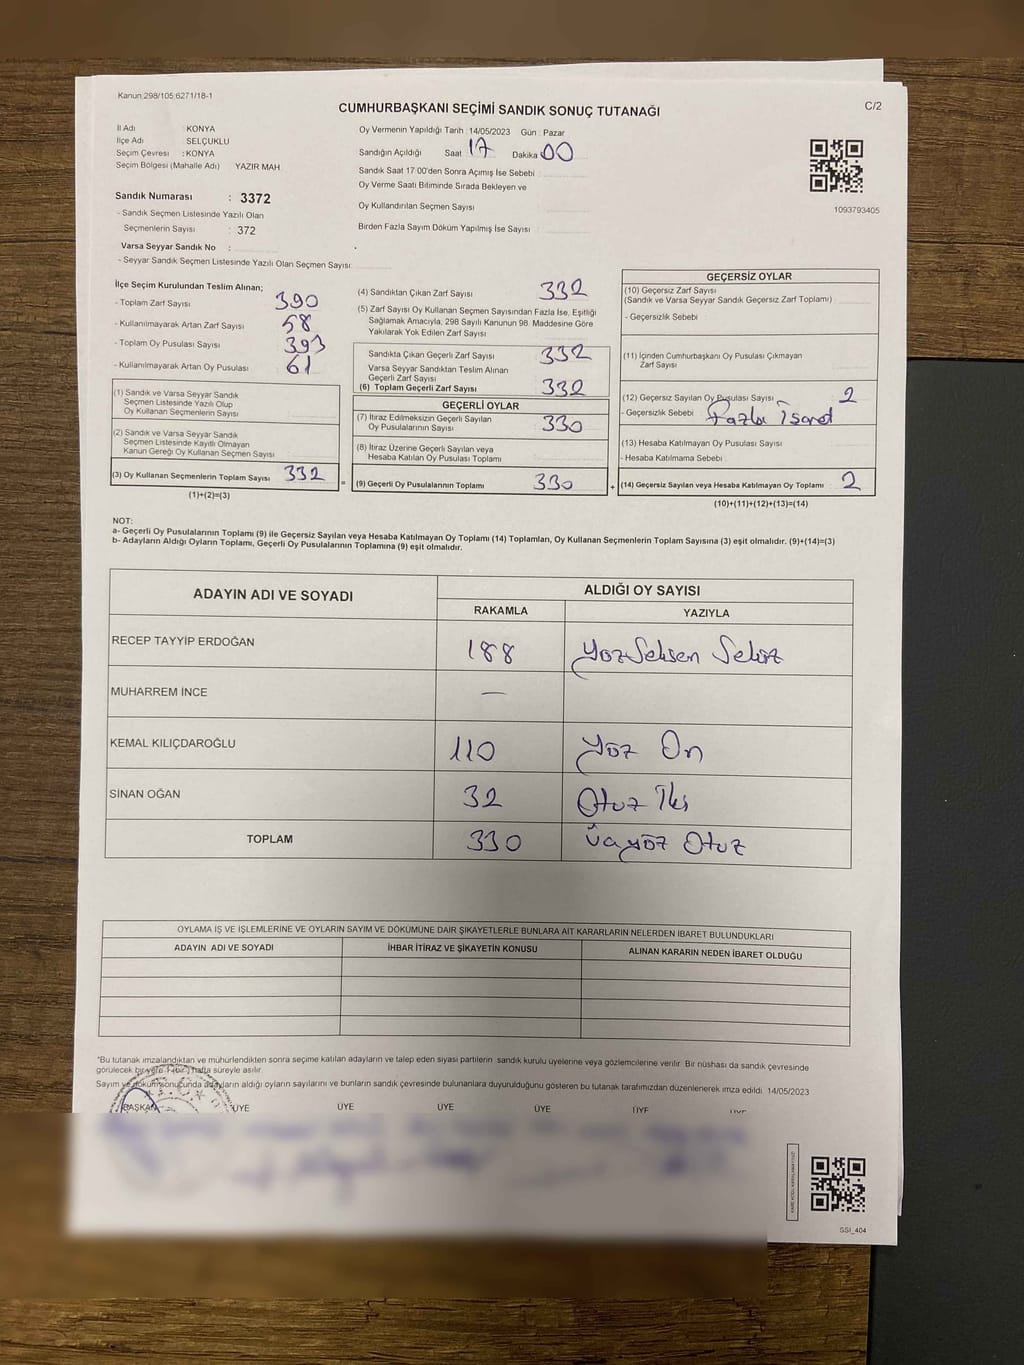 Kanun 298/105,6271/18-1
CUMHURBAŞKANI SEÇİMİ SANDIK SONUÇ TUTANAĞI
C/2
İl Adı : KONYA
İlçe Adı : SELÇUKLU
Seçim Çevresi : KONYA
Seçim Bölgesi (Mahalle Adı) YAZIR MAH
Sandık Numarası : 3372
- Sandık Seçmen Listesinde Yazılı Olan
Seçmenlerin Sayısı : 372
Varsa Seyyar Sandık No :
- Seyyar Sandık Seçmen Listesinde Yazılı Olan Seçmen Sayısı
Oy Vermenin Yapıldığı Tarih : 14/05/2023 Gün : Pazar
Sandığın Açıldığı Saat 17 Dakika 00
Sandık Saat 17:00'den Sonra Açmış İse Sebebi
Oy Verme Saati Bitiminde Sırada Bekleyen ve
Oy Kullandırılan Seçmen Sayısı
Birden Fazla Sayım Döküm Yapılmış İse Sayısı
1093793405
İlçe Seçim Kurulundan Teslim Alınan;
- Toplam Zarf Sayısı 390
- Kullanılmayarak Artan Zarf Sayısı 58
- Toplam Oy Pusulası Sayısı 393
- Kullanılmayarak Artan Oy Pusulası 61
(1) Sandık ve Varsa Seyyar Sandık
Seçmen Listesinde Yazılı Olup
Oy Kullanan Seçmenlerin Sayısı
(2) Sandık ve Varsa Seyyar Sandık
Seçmen Listesinde Kayıtlı Olmayan
Kanun Gereği Oy Kullanan Seçmen Sayısı
(3) Oy Kullanan Seçmenlerin Toplam Sayısı 332
(1)+(2)=(3)
(4) Sandıktan Çıkan Zarf Sayısı 332
(5) Zarf Sayısı Oy Kullanan Seçmen Sayısından Fazla İse, Eşitliği
Sağlamak Amacıyla, 298 Sayılı Kanunun 98. Maddesine Göre
Yakılarak Yok Edilen Zarf Sayısı
Sandıkta Çıkan Geçerli Zarf Sayısı 332
Varsa Seyyar Sandıktan Teslim Alınan
Geçerli Zarf Sayısı
(6) Toplam Geçerli Zarf Sayısı 332
GEÇERLİ OYLAR
(7) İtiraz Edilmeksizin Geçerli Sayılan
Oy Pusulalarının Sayısı 330
(8) İtiraz Üzerine Geçerli Sayılan veya
Hesaba Katılan Oy Pusulası Toplamı
= (9) Geçerli Oy Pusulalarının Toplamı 330
GEÇERSİZ OYLAR
(10) Geçersiz Zarf Sayısı
(Sandık ve Varsa Seyyar Sandık Geçersiz Zarf Toplamı)
- Geçersizlik Sebebi
(11) İçinden Cumhurbaşkanı Oy Pusulası Çıkmayan
Zarf Sayısı
(12) Geçersiz Sayılan Oy Pusulası Sayısı 2
- Geçersizlik Sebebi : Fazla İşaret
(13) Hesaba Katılmayan Oy Pusulası Sayısı
- Hesaba Katılmama Sebebi
+ (14) Geçersiz Sayılan veya Hesaba Katılmayan Oy Toplamı 2
(10)+(11)+(12)+(13)=(14)
NOT:
a- Geçerli Oy Pusulalarının Toplamı (9) ile Geçersiz Sayılan veya Hesaba Katılmayan Oy Toplamı (14) Toplamları, Oy Kullanan Seçmenlerin Toplam Sayısına (3) eşit olmalıdır. (9)+(14)=(3)
b- Adayların Aldığı Oyların Toplamı, Geçerli Oy Pusulalarının Toplamına (9) eşit olmalıdır.
ADAYIN ADI VE SOYADI
ALDIĞI OY SAYISI
RAKAMLA YAZIYLA
RECEP TAYYİP ERDOĞAN 188 YüzSeksen Sekiz
MUHARREM İNCE —
KEMAL KILIÇDAROĞLU 110 Yüz On
SİNAN OĞAN 32 Otuz İki
TOPLAM 330 Üçyüz Otuz
OYLAMA İŞ VE İŞLEMLERİNE VE OYLARIN SAYIM VE DÖKÜMÜNE DAİR ŞİKAYETLERLE BUNLARA AİT KARARLARIN NELERDEN İBARET BULUNDUKLARI
ADAYIN ADI VE SOYADI İHBAR İTİRAZ VE ŞİKAYETİN KONUSU ALINAN KARARIN NEDEN İBARET OLDUĞU
*Bu tutanak imzalandıktan ve mühürlendikten sonra seçime katılan adayların ve talep eden siyasi partilerin sandık kurulu üyelerine veya gözlemcilerine verilir. Bir nüshası da sandık çevresinde
görülecek bir yere 1 (bir) hafta süreyle asılır.
Sayım ve döküm sonucunda adayların aldığı oyların sayılarını ve bunların sandık çevresinde bulunanlara duyurulduğunu gösteren bu tutanak tarafımızdan düzenlenerek imza edildi. 14/05/2023
BAŞKAN ÜYE ÜYE ÜYE ÜYE ÜYE ÜYE
SSI_404